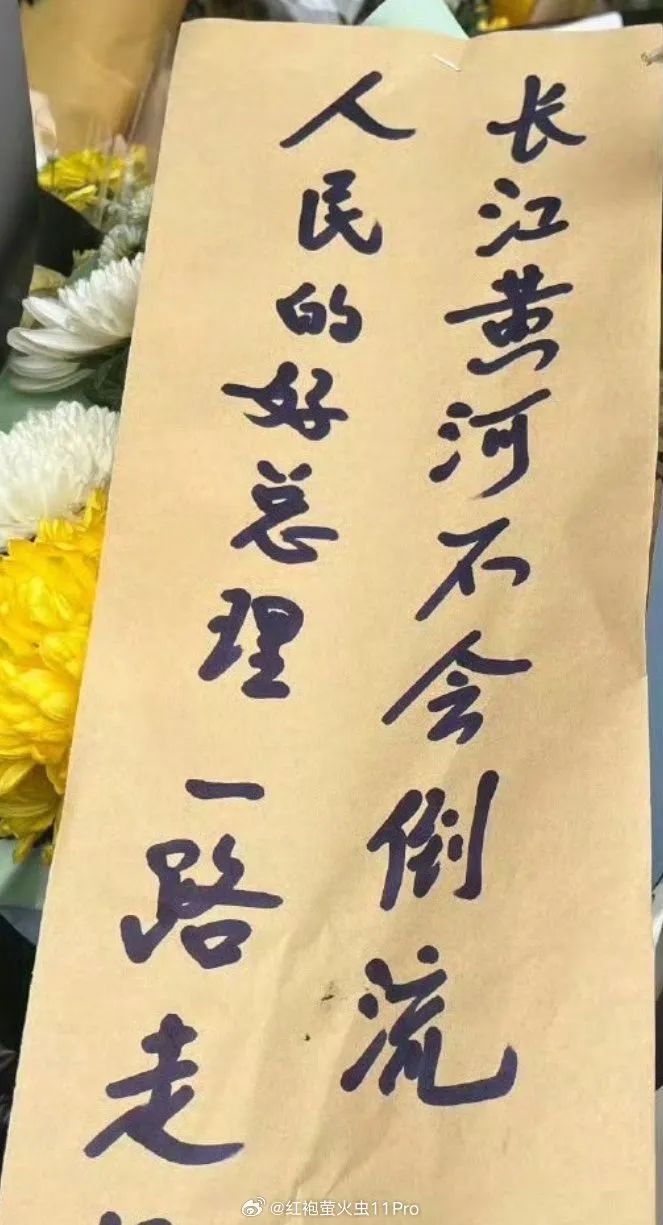 长江黄河不会倒流
人民的好总理一路走
@红袍萤火虫11Pro